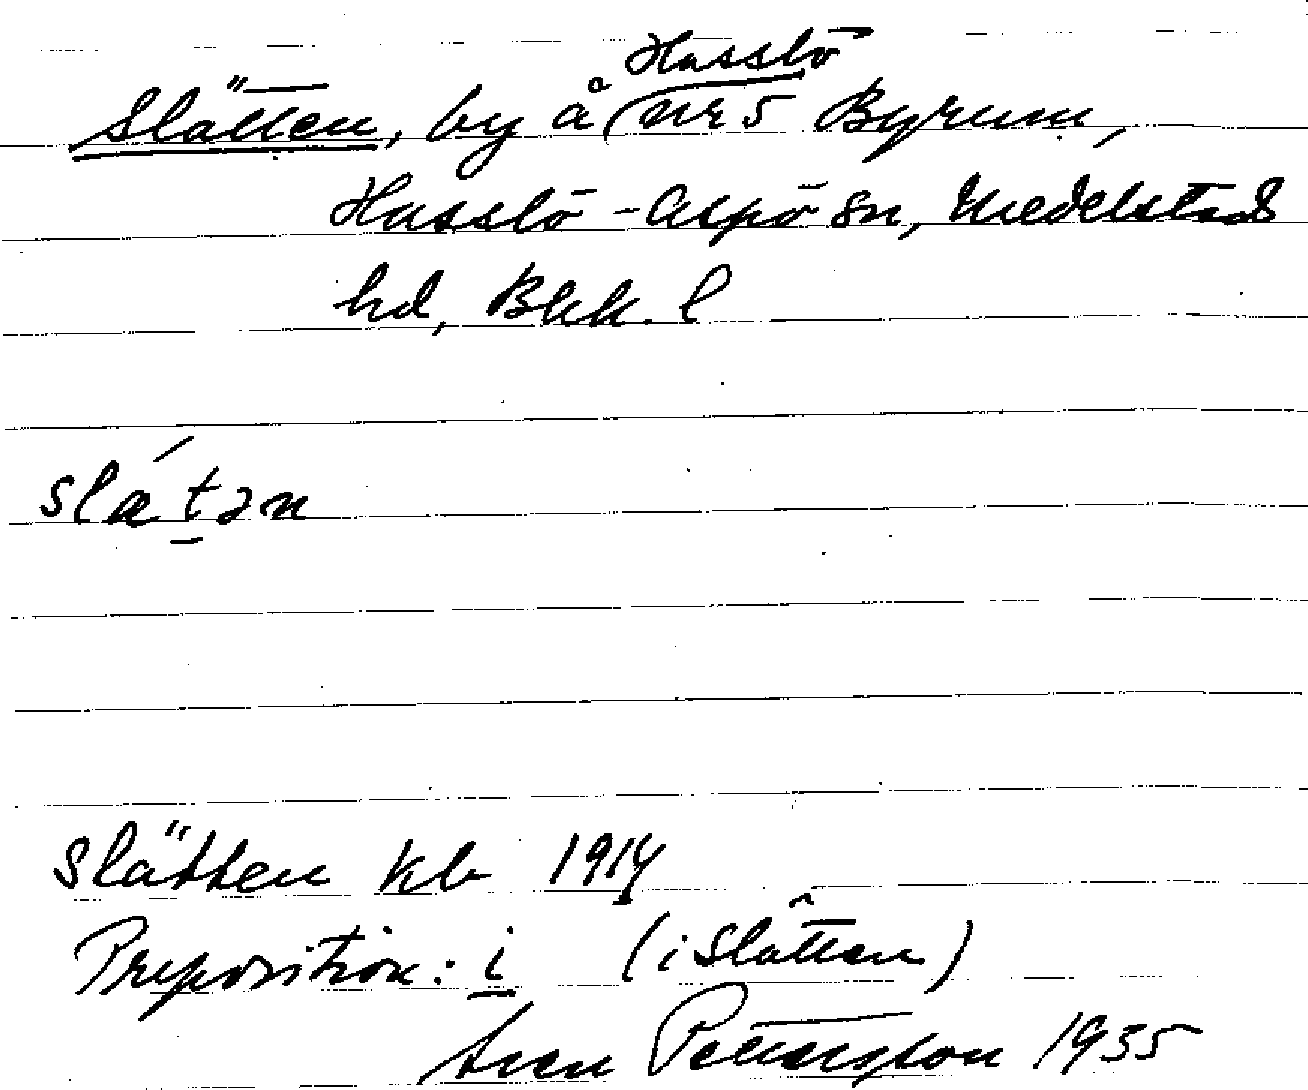 Hasslö
Slätten, by å nr 5 Byrum,
Hasslö-Aspö sn, Medelstad
hd, Blek. l
slǽtən
Slätten kb 1914
Preposition: i (i Slätten)
Sven Pettersson 1935